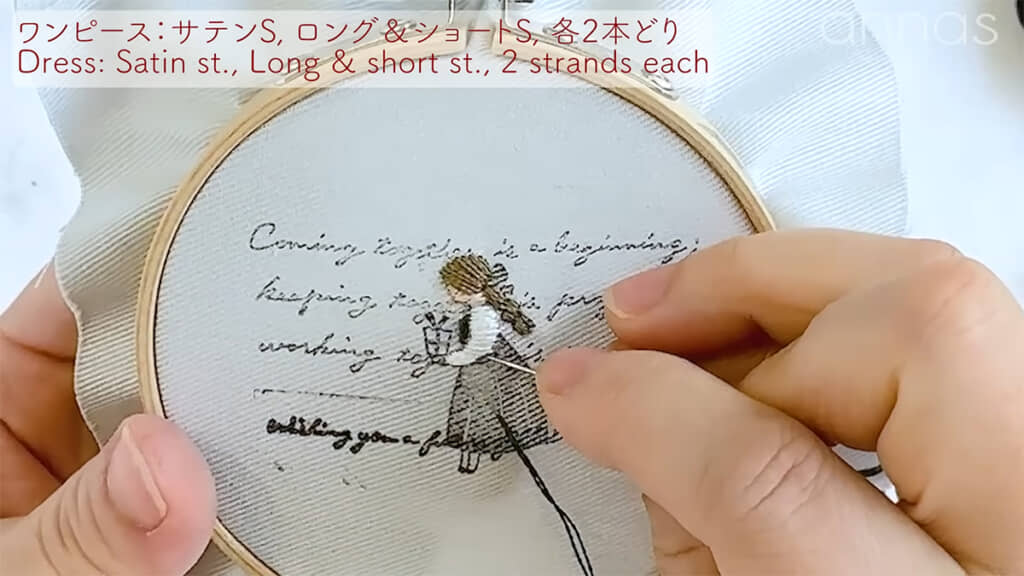 ワンピース：サテンS, ロング＆ショートS, 各2本どり
Dress: Satin st., Long & short st., 2 strands each
annas
Coming together is a beginning;
keeping
working
wishing you a